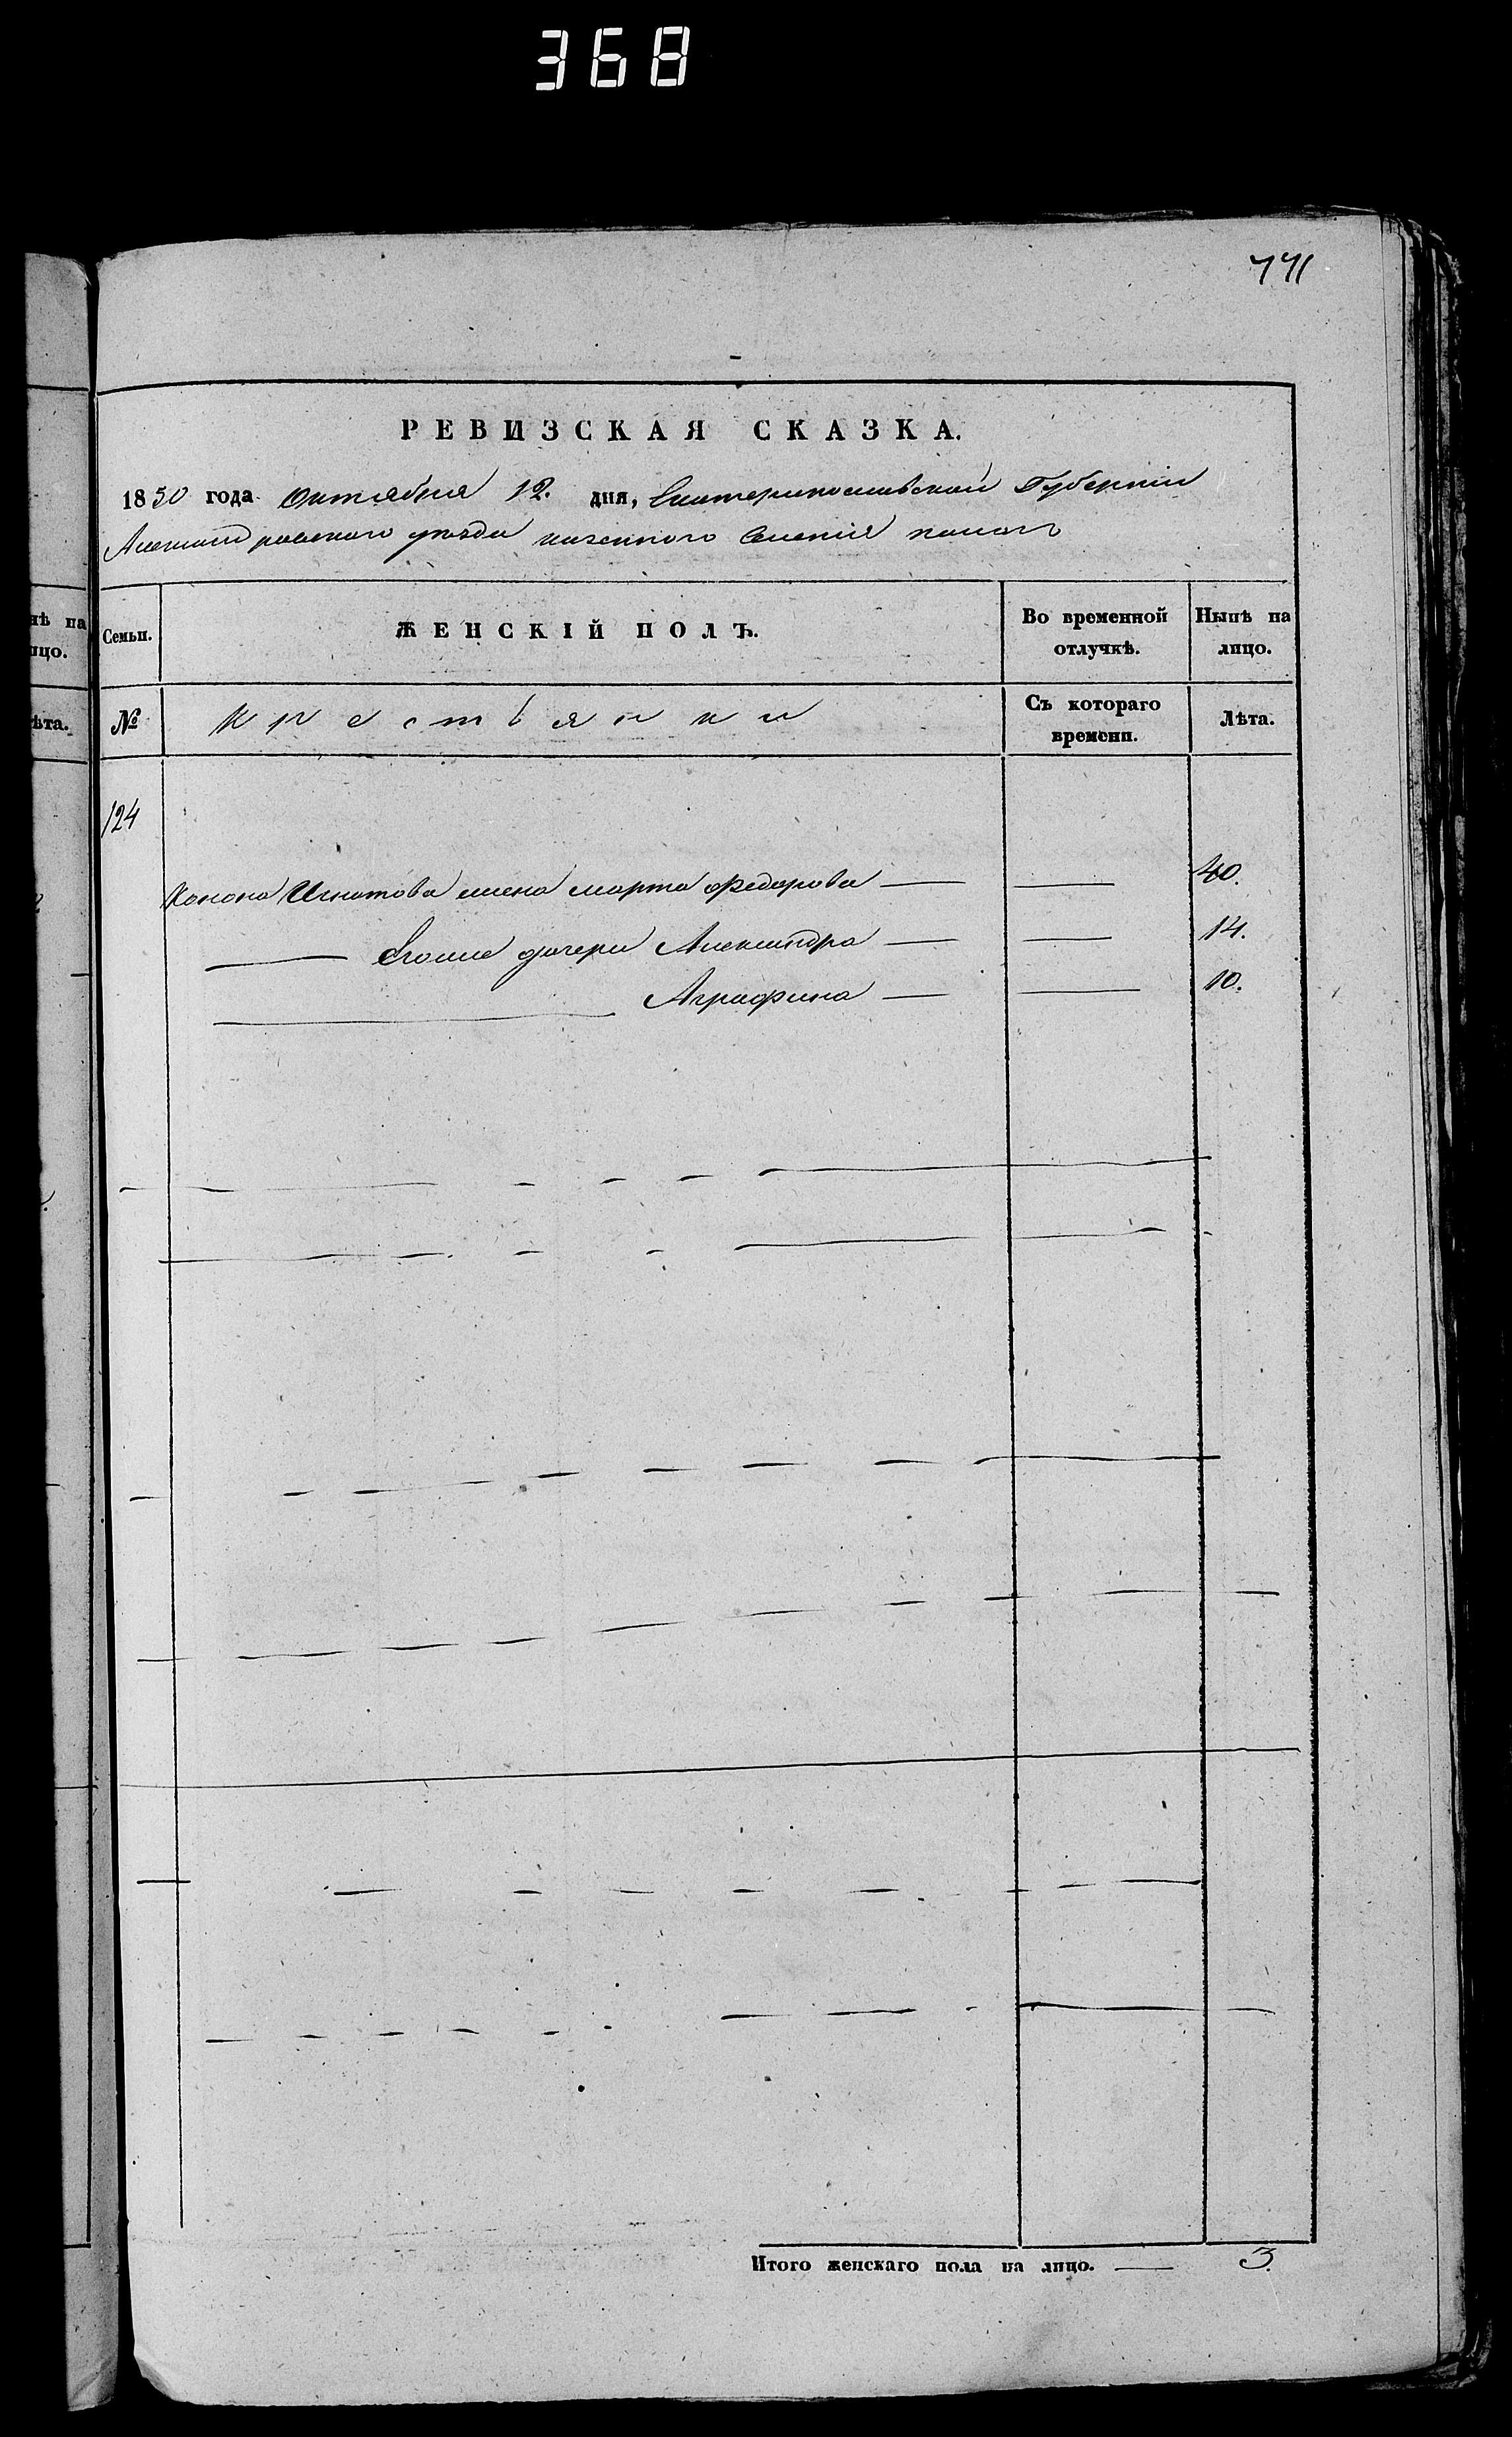 368
771
РЕВИЗСКАЯ СКАЗКА.
1850 года Октября 12. дня, Екатеринославской Губернии
Александровского уезда казенного Селения
нѣ на
лцо.
ѣта.
Семьи.
ЖЕНСКІЙ ПОЛЪ.
Во временной
отлучкѣ.
Нынѣ на
лицо.
№
Крестьянки
Съ котораго
времени.
Лѣта.
124
Конона Игнатова жена марта Федорова — — 40.
— Егоже дочери Александра — — 14.
— Аграфина — — 10.
Итого женскаго пола на лицо. — 3.